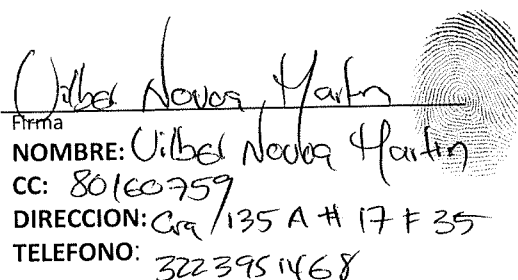 Uilber Novoa Martin
Firma
NOMBRE: Uilber Novoa Martin
CC: 80160759
DIRECCION: Cra 135 A # 17 F 35
TELEFONO: 3223951468